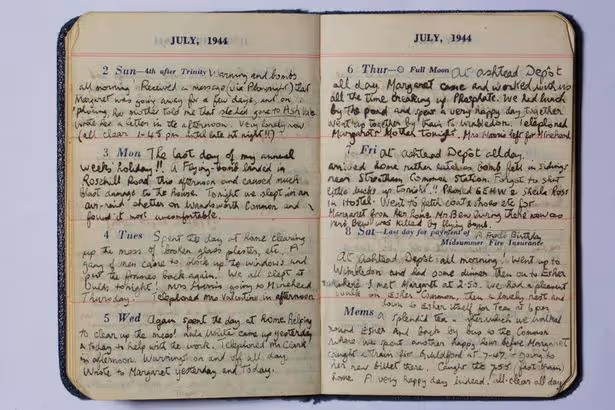 JULY, 1944
2 Sun—4th after Trinity Warning and bombs
all morning Received a message (via Plowright) that
Margaret was going away for a few days, and on
'phoning, her mother told me that she had gone to
wrote her a letter in the afternoon. Very lonely now
(all clear 1-45 pm until late at night!!)
3 Mon The last day of my annual
weeks holiday!! A Flying-bomb landed in
Rosehill Road this afternoon and caused much
blast damage to the house. Tonight we slept in an
air-raid shelter on Wandsworth Common and
found it most uncomfortable.
4 Tues Spent the day at home clearing
up the mess of broken glass plaster, etc. A
gang of men came to block up the windows and
put the frames back again. We all slept at
tonight! Mrs Morris going to Minehead
Thursday. Telephoned Mrs Valentine in afternoon
5 Wed Again spent the day at home helping
to clear up the mess! White came up yesterday
& today to help with the work. Telephoned Mr Clark
in afternoon. Warnings on and off all day.
Wrote to Margaret yesterday and Today.
JULY, 1944
6 Thur— Full Moon At Ashtead Dep't
all day. Margaret came and worked with us
all the time breaking up Phosphate. We had lunch
by the pond and spent a very happy day together
Went up together by train to Wimbledon. Telephoned
Margaret's Mother tonight. Mrs Morris left for Minehead
7 Fri At Ashtead Depot all day
arrived home rather late as bomb fell in sidings
near Streatham Common station. Forgot to shut
up tonight!! Phoned & Sheila Ross
in Hostel. Went to fetch coat & shoes etc for
Margaret from her home Mr Bew during there now as
Mrs Bew was killed by flying bomb.
8 Sat—Last day for payment of
Midsummer Fire Insurance
Birthday
At Ashtead Depot all morning! Went up to
Wimbledon and had some dinner then on to Esher
where I met Margaret at 2-50. We had a pleasant
walk on Esher Common, then a lovely rest and
down to Esher itself for Tea at 6pm
Mems
a splendid tea - after which we walked
round Esher and back by bus to the Common
where we spent another happy hour before Margaret
caught a train for Guildford at 7-47 - going to
her new billet there. Caught the 7.55 (fast train)
home. A very happy day indeed. all-clear all day